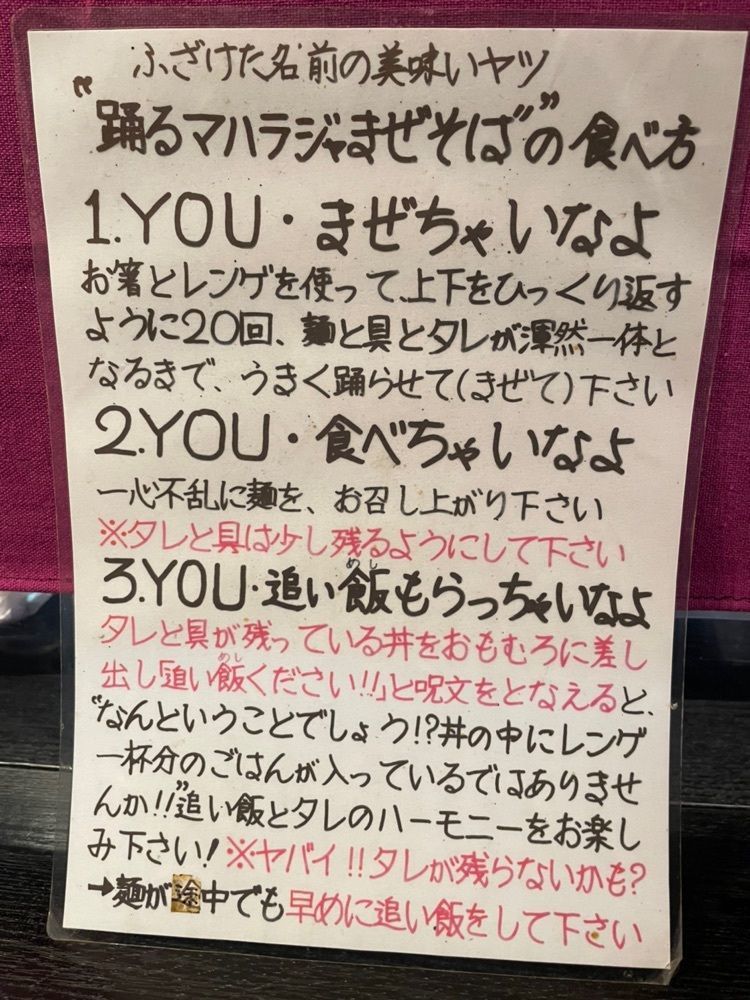 ふざけた名前の美味いヤツ
“踊るマハラジャまぜそば”の食べ方
1.YOU・まぜちゃいなよ
お箸とレンゲを使って、上下をひっくり返す
ように20回、麺と具とタレが渾然一体と
なるまで、うまく踊らせて(まぜて)下さい
2.YOU・食べちゃいなよ
一心不乱に麺を、お召し上がり下さい
※タレと具は少し残るようにして下さい
3.YOU・追い飯もらっちゃいなよ
めし
タレと具が残っている丼をおもむろに差し
出し「追い飯ください!!」と呪文をとなえると、
めし
“なんということでしょう!?丼の中にレンゲ
一杯分のごはんが入っているではありませ
んか!!”追い飯とタレのハーモニーをお楽し
み下さい!※ヤバイ!!タレが残らないかも?
→麺が途中でも早めに追い飯をして下さい